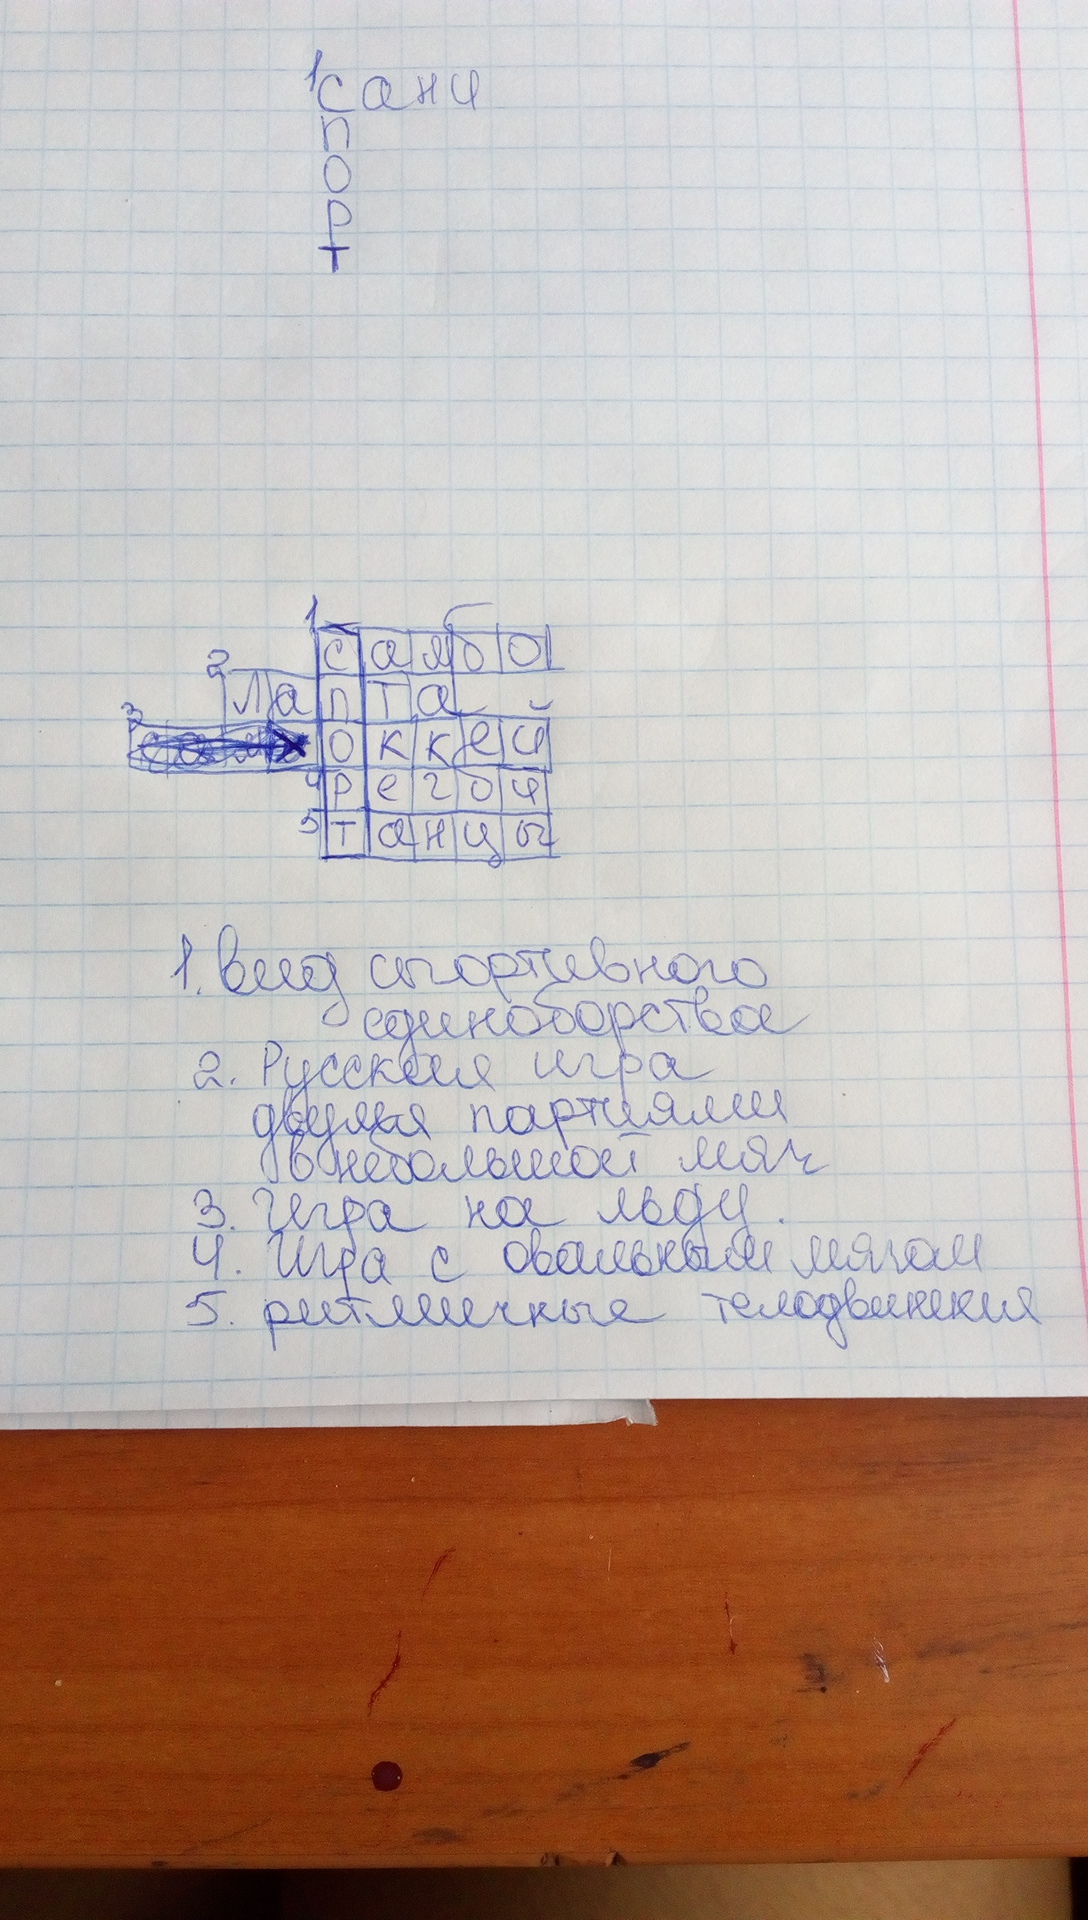 1сани
п
о
р
т
1 самбо
2 лапта
3 хоккей
4 регби
5 танцы
1. вид спортивного
единоборства
2. Русская игра
двумя партиями
в небольшой мяч
3. Игра на льду.
4. Игра с овальным мячом
5. ритмичные телодвижения